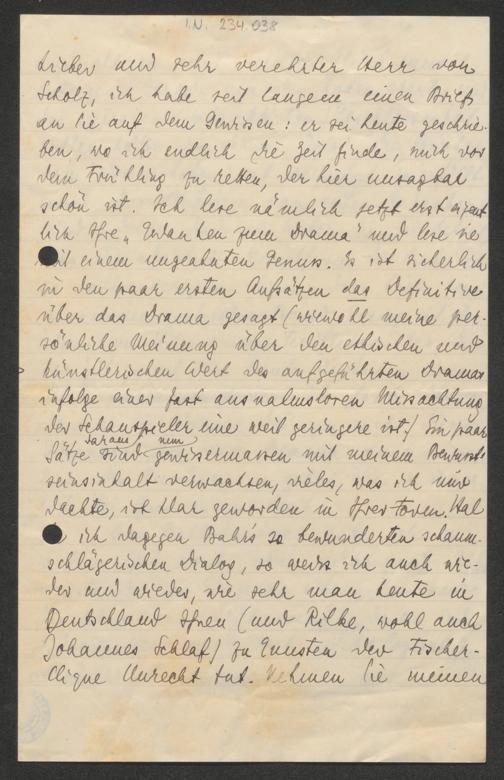 I.N. 234.938
Lieber und sehr verehrter Herr von
Scholz, ich habe seit langem einen Brief
an Sie auf dem Gewissen: er sei heute geschrie-
ben, wo ich endlich die Zeit finde, mich vor
dem Frühling zu retten, der hier unsagbar
schön ist. Ich lese nämlich jetzt erst eigent
lich Ihre „Gedanken zum Drama" und lese sie
mit einem ungeahnten Genuss. Es ist sicherlich
in den paar ersten Aufsätzen das Definitive
über das Drama gesagt (wiewohl meine per-
sönliche Meinung über den ethischen und
künstlerischen Wert des aufgeführten Dramas
infolge einer fast ausnahmslosen Missachtung
der Schauspieler eine weil geringere ist.) Ein paar
Sätze daraus sind nun gewissermassen mit meinem Bewusst-
seinsinhalt verwachsen, vieles, was ich nur
dachte, ist klar geworden in Ihrer Form. Hal
te ich dagegen Bahr's so bewunderten schaum-
schlägerischen Dialog, so weiss ich auch wie-
der und wieder, wie sehr man heute in
Deutschland Ihnen (und Rilke, wohl auch
Johannes Schlaf) zu Gunsten der Fischer-
Clique Unrecht tut. Nehmen Sie meinen